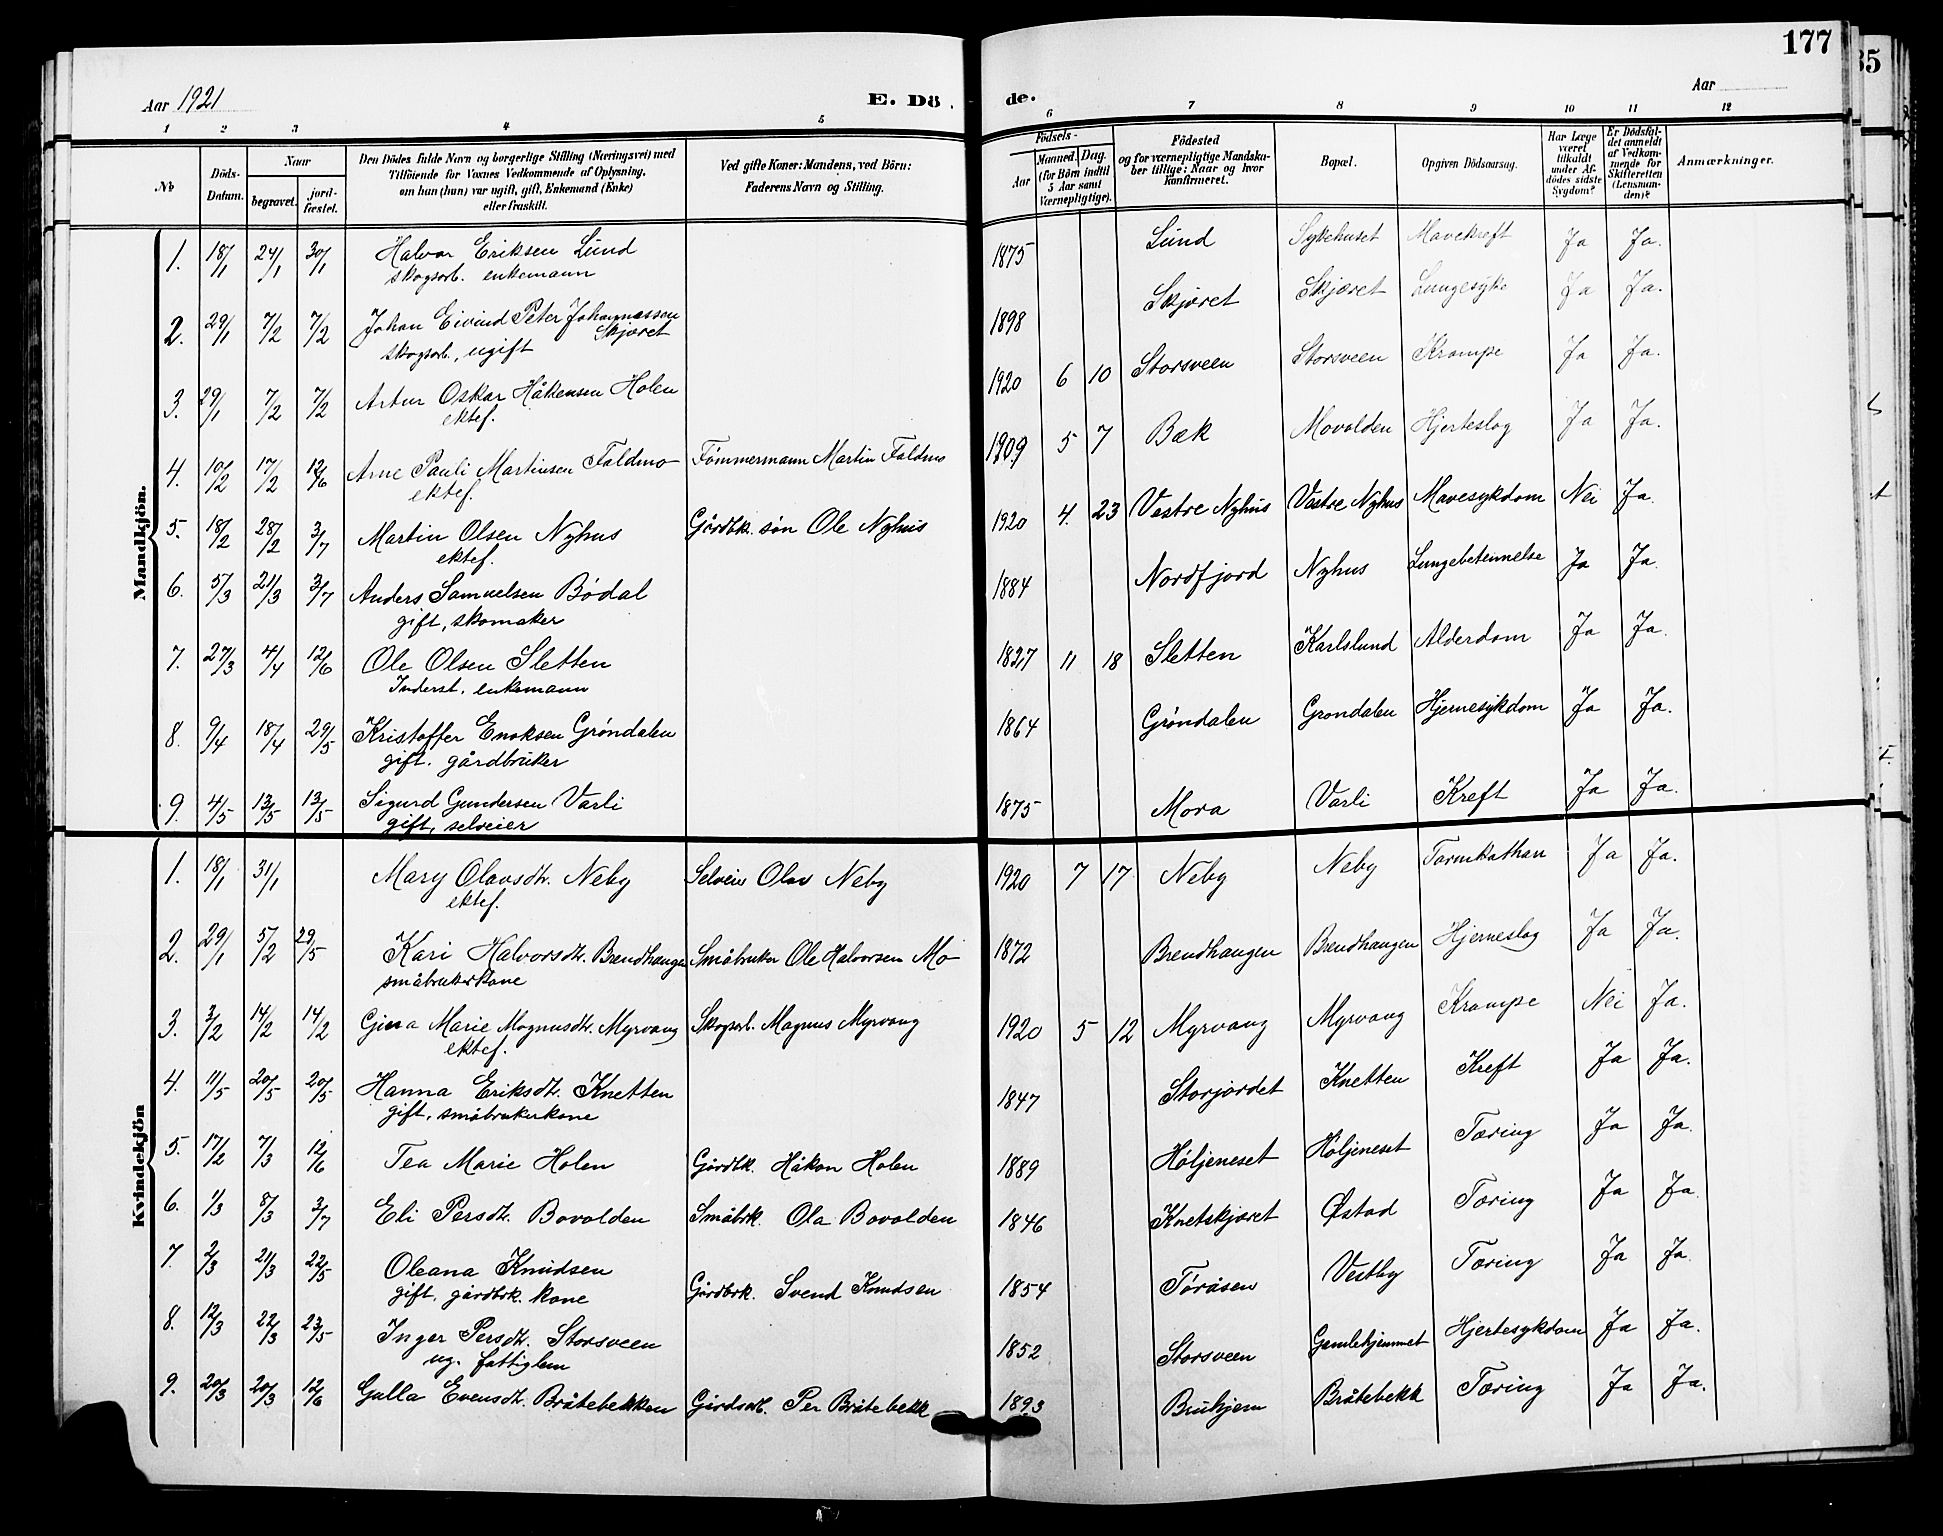 177
35
Aar 1921
E. Dö
de.
Aar
1 2 3 4 5 6 7 8 9 10 11 12
No
Döds-Datum.
Naar
begravet.
jord-fæstet.
Den Dödes fulde Navn og borgerlige Stilling (Næringsvei) med
Tilföiende for Voxnes Vedkommende af Oplysning,
om han (hun) var ugift, gift, Enkemand (Enke)
eller fraskilt.
Ved gifte Koner: Mandens, ved Börn:
Faderens Navn og Stilling.
Födsels-
Aar
Maaned. Dag.
(for Börn indtil
5 Aar samt
Værnepligtige).
Födested
og for værnepligtige Mandska-
ber tillige: Naar og hvor
konfirmeret.
Bopæl.
Opgiven Dödsaarsag.
Har Læge
været
tilkaldt
under Af-
dödes sidste
Sygdom?
Er Dödsfal-
det anmeldt
af Vedkom-
mende for
Skifteretten
(Lensman-
den)?
Anmærkninger.
Mandkjön.
1. 18/1 24/1 30/1 Halvor Eriksen Lund 1875 Lund Sykehuset Mavekreft Ja Ja.
skogsarb. enkemann
2. 29/1 7/2 7/2 Johan Eivind Peter Johannessen 1898 Skjæret Skjæret Lungesyke Ja Ja.
Skjæret
skogsarb., ugift
3. 29/1 7/2 7/2 Artur Oskar Håkensen Holen 1920 6 10 Storsveen Storsveen Krampe Ja Ja.
ektef.
4. 10/2 17/2 12/6 Arne Pauli Martinsen Faldmo Tømmermann Martin Faldmo 1909 5 7 Bæk Movolden Hjerteslag Ja Ja.
ektef.
5. 18/2 28/2 3/7 Martin Olsen Nyhus Gårdbk. søn Ole Nyhus 1920 4. 23 Vestre Nyhus Vestre Nyhus Mavesykdom Nei Ja.
ektef.
6. 5/3 21/3 3/7 Anders Samuelsen Bödal 1884 Nordfjord Nyhus Lungebetennelse Ja Ja.
gift, skomaker
7. 27/3 4/4 12/6 Ole Olsen Sletten 1827 11 18 Sletten Karlslund Alderdom Ja Ja.
Inderst. enkemann
8. 9/4 18/4 29/5 Kristoffer Enoksen Gröndalen 1864 Gröndalen Grondalen Hjernesykdom Ja Ja.
gift. gårdbruker
9. 4/5 13/5 13/5 Sigurd Gundersen Varli 1875 Mora Varli Kreft Ja Ja.
gift, selveier
Kvindekjön
1. 18/1 31/1 Mary Olavsdtr. Neby Selveier Olav Neby 1920 7 17 Neby Neby Tarmkathar Ja Ja.
ektef.
2. 29/1 5/2 29/5 Kari Halvorsdtr. Brendhaugen Småbruker Ole Halvorsen Mo 1872 Brendhaugen Brendhaugen Hjerneslag Ja Ja.
småbrukerkone
3. 3/2 14/2 14/2 Gina Marie Magnusdtr. Myrvang Skogsarb. Magnus Myrvang 1920 5 12 Myrvang Myrvang Krampe Nei Ja.
ektef.
4. 11/5 20/5 20/5 Hanna Eriksdtr. Knetten 1847 Storjordet Knetten Kreft Ja Ja.
gift, småbrukerkone
5. 17/2 7/3 12/6 Tea Marie Holen Gårdbk. Håkon Holen 1889 Höljeneset Höljeneset Tæring Ja Ja.
6. 1/3 8/3 3/7 Eli Persdtr. Bovolden Småbrk. Ola Bovolden 1846 Knetskjæret Østad Tæring Ja Ja
7. 2/3 21/3 22/5 Oleana Knudsen Gårdbrk. Svend Knudsen 1854 Töråsen Vestby Tæring Ja Ja.
gift, gårdbrk. kone
8. 12/3 22/3 23/5 Inger Persdtr. Storsveen 1852 Storsveen Gamlehjemmet Hjertesykdom Ja Ja.
ug. fattiglem
9. 20/3 20/3 12/6 Gulla Evensdtr. Bråtebekken Gårdsarb. Per Bråtebekk 1893 Bruhjem Bråtebekk Tæring Ja Ja.